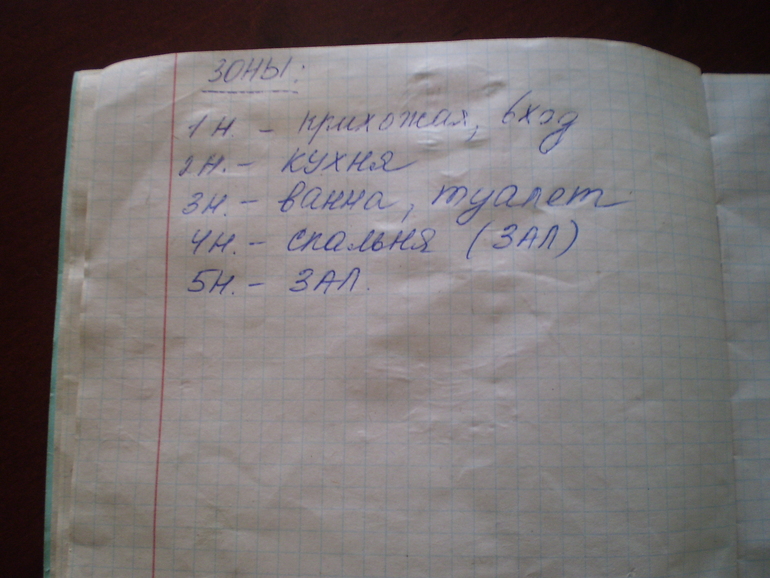 ЗОНЫ:
1н. - прихожая, вход
2н. - кухня
3н. - ванна, туалет
4н. - спальня (ЗАЛ)
5н. - ЗАЛ.